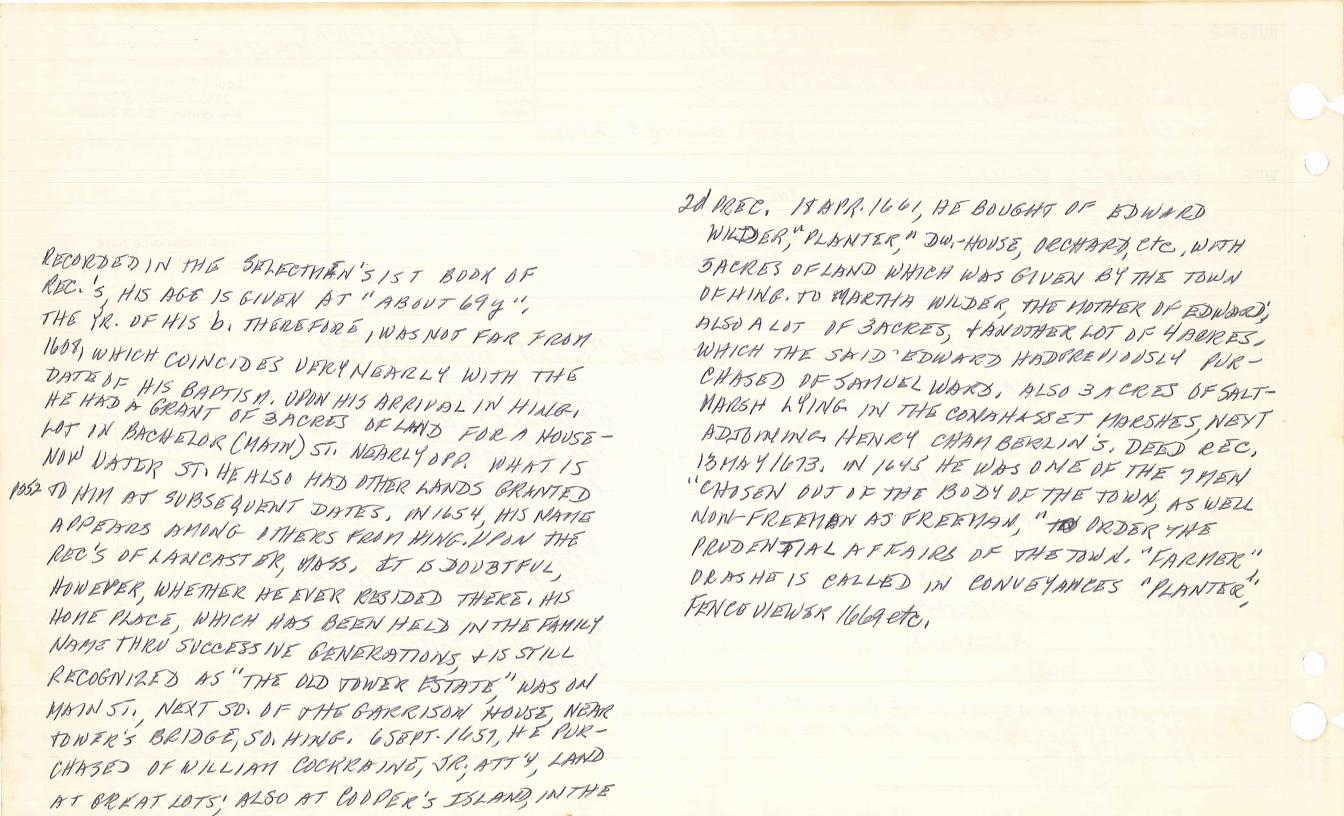 RECORDED IN THE SELECTMEN'S 1ST BOOK OF
REC.'S, HIS AGE IS GIVEN AT "ABOUT 69y".
THE YR. OF HIS b. THEREFORE, WAS NOT FAR FROM
1608, WHICH COINCIDES VERY NEARLY WITH THE
DATE OF HIS BAPTISM. UPON HIS ARRIVAL IN HING.
HE HAD A GRANT OF 3 ACRES OF LAND FOR A HOUSE-
LOT IN BACHELOR (MAIN) ST. NEARLY OPP. WHAT IS
NOW WATER ST. HE ALSO HAD OTHER LANDS GRANTED
TO HIM AT SUBSEQUENT DATES. IN 1654, HIS NAME
APPEARS AMONG OTHERS FROM HING. UPON THE
REC'S OF LANCASTER, MASS. IT IS DOUBTFUL,
HOWEVER, WHETHER HE EVER RESIDED THERE. HIS
HOME PLACE, WHICH HAS BEEN HELD IN THE FAMILY
NAME THRU SUCCESSIVE GENERATIONS, & IS STILL
RECOGNIZED AS "THE OLD TOWER ESTATE," WAS ON
MAIN ST., NEXT SO. OF THE GARRISON HOUSE, NEAR
TOWER'S BRIDGE, SO. HING. 6 SEPT. 1657, HE PUR-
CHASED OF WILLIAM COCKRAINE, JR; ATT'Y, LAND
AT GREAT LOTS; ALSO AT COOPER'S ISLAND, IN THE
2d PREC. 18 APR. 1661, HE BOUGHT OF EDWARD
WILDER, "PLANTER," DW.-HOUSE, ORCHARD, etc., WITH
5 ACRES OF LAND WHICH WAS GIVEN BY THE TOWN
OF HING. TO MARTHA WILDER, THE MOTHER OF EDWARD;
ALSO A LOT OF 3 ACRES, & ANOTHER LOT OF 4 ACRES,
WHICH THE SAID EDWARD HAD PREVIOUSLY PUR-
CHASED OF SAMUEL WARD. ALSO 3 ACRES OF SALT-
MARSH LYING IN THE CONAHASSET MARSHES, NEXT
ADJOINING HENRY CHAMBERLIN'S. DEED REC.
13 MAY 1673. IN 1645 HE WAS ONE OF THE 7 MEN
"CHOSEN OUT OF THE BODY OF THE TOWN, AS WELL
NON-FREEMAN AS FREEMAN, "TO ORDER THE
PRUDENTIAL AFFAIRS OF THE TOWN. "FARMER"
OR AS HE IS CALLED IN CONVEYANCES "PLANTER",
FENCE VIEWER 1669 etc.